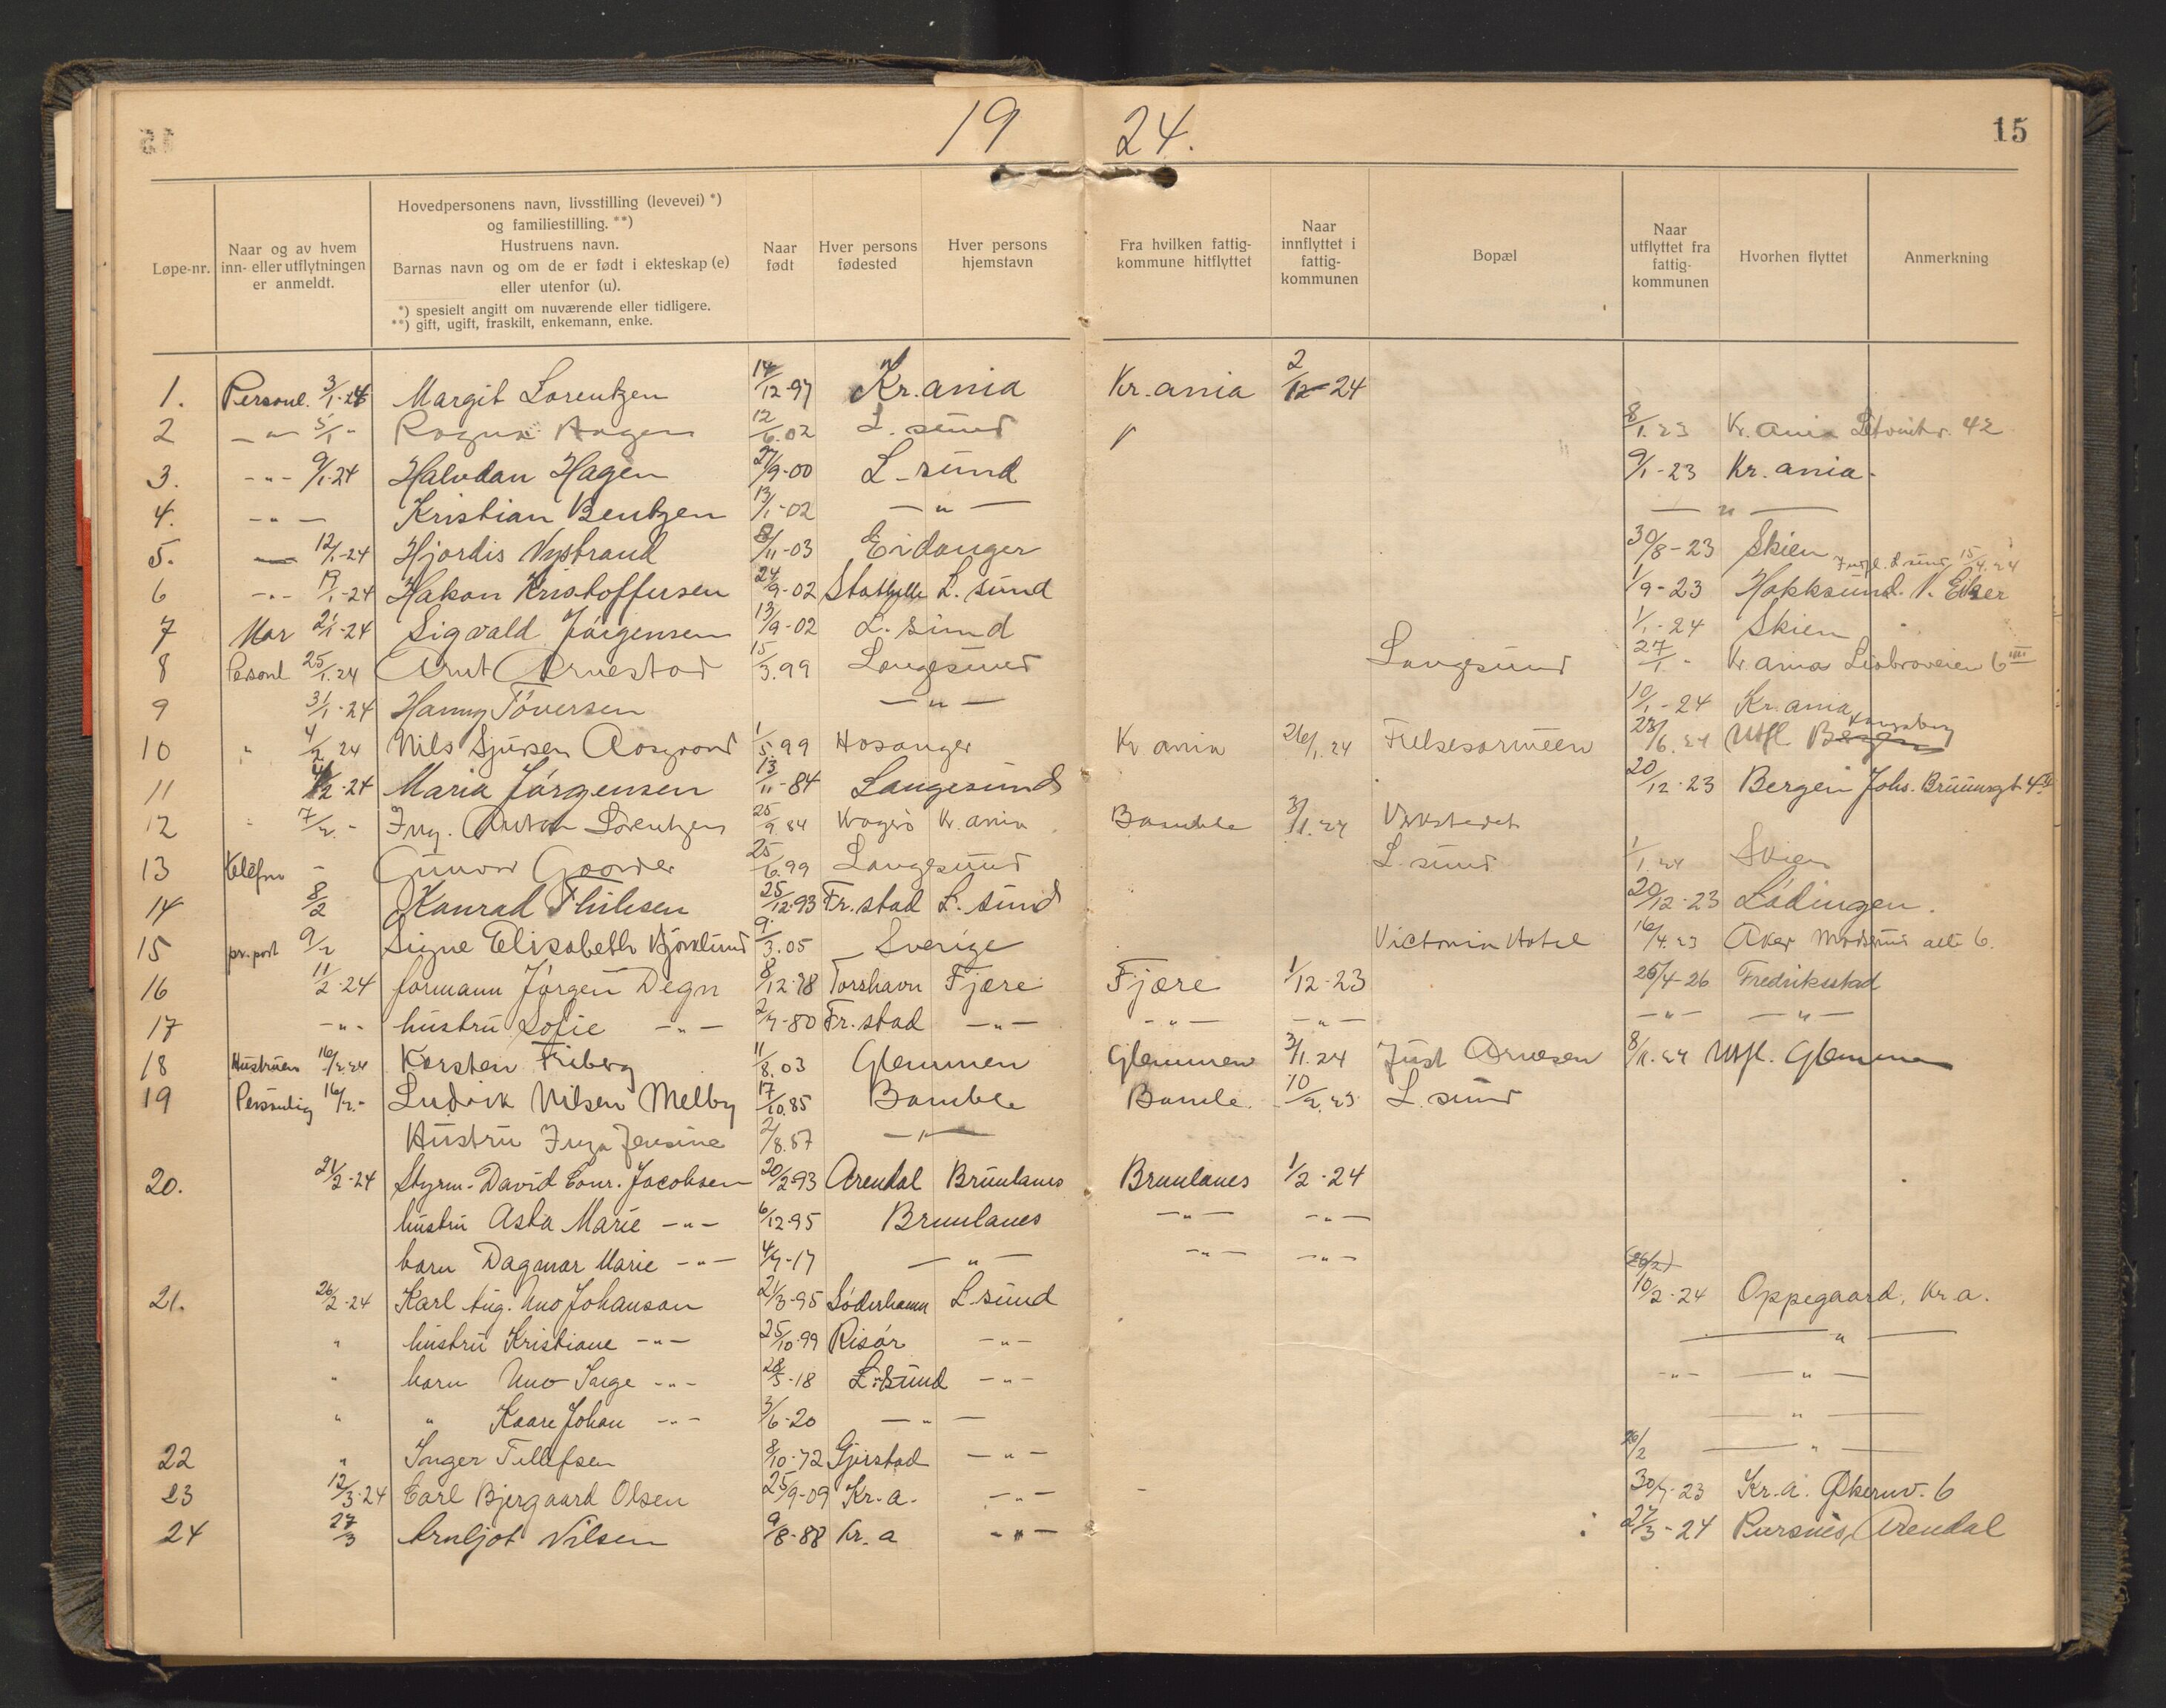 19 24.
15
Løpe-nr.
Naar og av hvem
inn- eller utflytningen
er anmeldt.
Hovedpersonens navn, livsstilling (levevei) *)
og familiestilling. **)
Hustruens navn.
Barnas navn og om de er født i ekteskap (e)
eller utenfor (u).
*) spesielt angitt om nuværende eller tidligere.
**) gift, ugift, fraskilt, enkemann, enke.
Naar
født
Hver persons
fødested
Hver persons
hjemstavn
Fra hvilken fattig-
kommune hitflyttet
Naar
innflyttet i
fattig-
kommunen
Bopæl
Naar
utflyttet fra
fattig-
kommunen
Hvorhen flyttet
Anmerkning
1. Personl. 3/1-24 Margit Lorentzen 14/12-97 Kr.ania Kr.ania 2/12-24
2 -"- 5/1 " Hagen 12/6.02 L.sund 8/1.23 Kr.ania 42
3. -"- 9/1-24 Halvdan Hagen 27/9-00 L.sund 9/1-23 Kr.ania-
4. -"- Kristian Bentzen 13/1-02 -"- -"-
5. 12/1-24 Hjordis Nystrand 8/11-03 Eidanger 30/8-23 Skien L.sund 15/4.24
6 -"- 19/1-24 Hakon Kristoffersen 24/9-02 Stathelle L.sund 1/9-23 Hokksund. N. Eiker
7 Mor 21/1-24 Sigvald Jörgensen 13/9-02 L.sund 1/1-24 Skien
8 Personl 25/1.24 Arnt Arnestad 15/3.99 Langesund Langesund 27/1 - Kr.ania 6 III
9 31/1-24 Hanny Töversen -"- 10/1-24 Kr.ania
10 " 4/2 24 Nils Sjursen 1/5 99 Hosanger Kr ania 26/1.24 Frelsesarmeen 28/6.24 Utfl. Bergen Kongsberg
11 4/2-24 Maria Jörgensen 13/11-84 Langesund 20/12-23 Bergen Johs. Bruunsgt 4
12 7/2 - Ing. Anton Lorentzen 25/9 84 Kragerö Kr.ania Bamble 3/1.24 Verkstedet
13 Telefon - Gunvor Gaarder 25/6.99 Langesund L.sund 1/1.24 Skien
14 8/2 Konrad Thilesen 25/12-93 Fr.stad L.sund 20/12-23 Lödingen.
15 pr.post 9/2 Signe Elisabeth Björklund 9/3.05 Sverige Victoria Hotel 16/4.23 Aker alle 6.
16 11/2-24 formann Jörgen Degn 8/12-78 Torshavn Fjære Fjære 1/12-23 25/4-26 Fredriksstad
17 -"- hustru Sofie -"- 2/7-80 Fr.stad -"- -"- -"- -"- -"-
18 Hustruen 16/2.24 Karsten Friberg 11/8.03 Glemmen Glemmen 3/1.24 Just Arnesen 8/11.24 Utfl. Glemmen
19 Personlig 16/2.- Ludvik Nilsen Melby 17/10.85 Bamble Bamle. 10/2.23 L.sund
Hustru Inga Jensine 2/8.87 -"-
20. 21/2-24 Styrm. David Conr. Jacobsen 20/2-93 Arendal Brunlanes Brunlanes 1/2-24
hustru Asta Marie -"- 6/12-95 Brunlanes -"- -"-
barn Dagmar Marie -"- 4/7-17 -"- -"- -"-
21. 26/2-24 Karl Aug. Uno Johanson 21/3-95 Söderhamn L.sund (26/2) 10/2-24 Oppegaard, Kr.a.
" hustru Kristiane -"- 25/10-99 Risör -"- -"-
" barn Uno Inge -"- 28/5-18 L.sund -"- -"- -"-
" " Kaare Johan -"- 3/6-20 -"- -"-
22 " Inger Tellefsen 8/10-72 Gjerstad -"- 26/2 -"-
23 12/3-24 Carl Bjergaard Olsen 25/9-09 Kr.a. -"- 30/7-23 Kr.a. Økernv. 6
24 27/3 Arnljot Nilsen 9/8-88 Kr.a -"- 27/3-24 Arendal